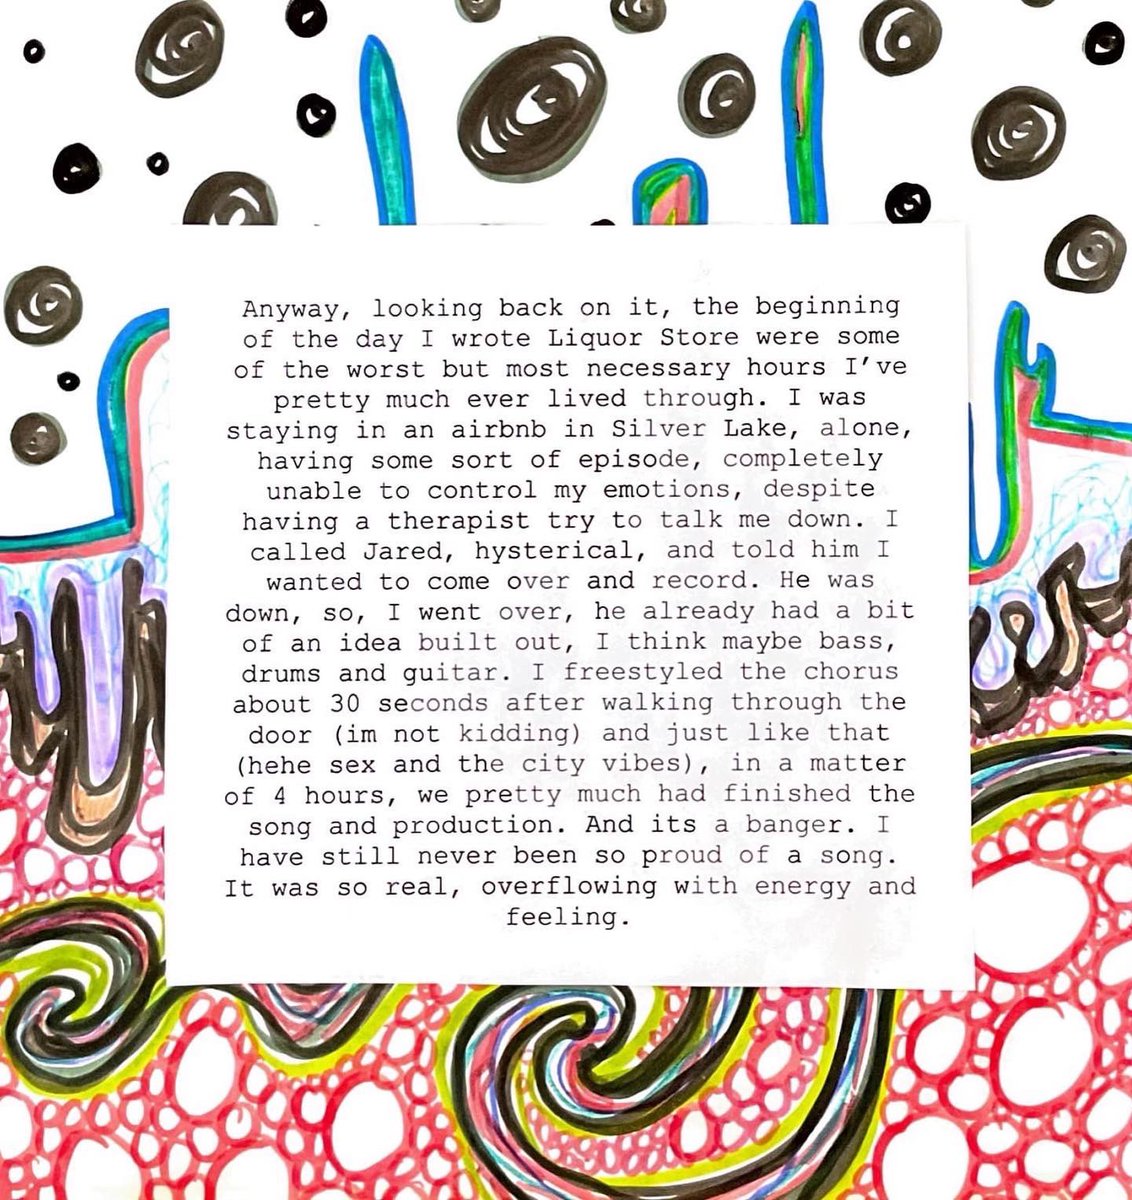 Anyway, looking back on it, the beginning
of the day I wrote Liquor Store were some
of the worst but most necessary hours I've
pretty much ever lived through. I was
staying in an airbnb in Silver Lake, alone,
having some sort of episode, completely
unable to control my emotions, despite
having a therapist try to talk me down. I
called Jared, hysterical, and told him I
wanted to come over and record. He was
down, so, I went over, he already had a bit
of an idea built out, I think maybe bass,
drums and guitar. I freestyled the chorus
about 30 seconds after walking through the
door (im not kidding) and just like that
(hehe sex and the city vibes), in a matter
of 4 hours, we pretty much had finished the
song and production. And its a banger. I
have still never been so proud of a song.
It was so real, overflowing with energy and
feeling.